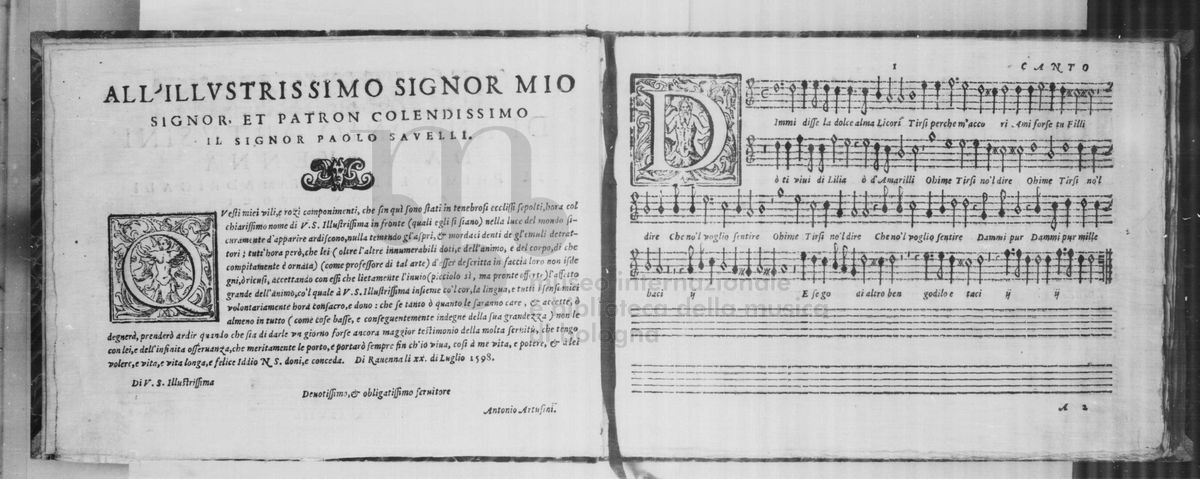 ALL'ILLVSTRISSIMO SIGNOR MIO
SIGNOR, ET PATRON COLENDISSIMO
IL SIGNOR PAOLO SAVELLI.
QVesti miei vili, e rozi componimenti, che sin quì sono stati in tenebrosi ecclissi sepolti, hora col
chiarissimo nome di V. S. Illustrissima in fronte (quali egli si siano) nella luce del mondo si-
curamente d'apparire ardiscono, nulla temendo gl'aspri, & mordaci denti de gl'emuli detrat-
tori; tutt'hora però, che lei (oltre l'altre innumerabili doti, e dell'animo, e del corpo, di che
compitamente è ornata) (come professore di tal arte) d'esser descritta in faccia loro non isde
gni, ò ricusi, accettando con essi che lietamente l'inuio (picciolo sì, ma pronte offerte) l'affetto
grande dell'animo, co'l quale à V. S. Illustrissima insieme co'l cor, la lingua, e tutti i sensi miei
volontariamente hora consacro, e dono: che se tanto ò quanto le saranno care, & accette, ò
almeno in tutto (come cose basse, e conseguentemente indegne della sua grandezza) non le
degnerà, prenderò ardir quando che sia di darle vn giorno forse ancora maggior testimonio della molta seruitù, che tengo
con lei, e dell'infinita osseruanza, che meritamente le porto, e portarò sempre fin ch'io viua, così à me vita, e potere, & à lei
volere, e vita, e vita longa, e felice Iddio N. S. doni, e conceda. Di Rauenna li xx. di Luglio 1598.
Di V. S. Illustrissima
Deuotissimo, & obligatissimo seruitore
Antonio Artusini.
1 CANTO
DImmi disse la dolce alma Licori Tirsi perche m'acco ri Ami forse tu Filli
ò ti viui di Lilia ò d'Amarilli Ohime Tirsi no'l dire Ohime Tirsi no'l
dire Che no'l voglio sentire Ohime Tirsi no'l dire Che no'l voglio sentire Dammi pur Dammi pur mille
baci ij E se go ai altro ben godilo e taci ij ij
A 2
m
museo internazionale
e biblioteca della musica
di bologna